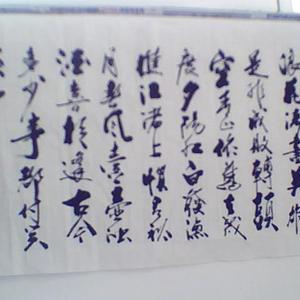 浪花淘尽英雄
是非成敗轉頭
空青山依舊在幾
度夕陽紅白髮漁
樵江渚上慣看秋
月春風壹壺濁
酒喜相逢古今
多少事都付笑